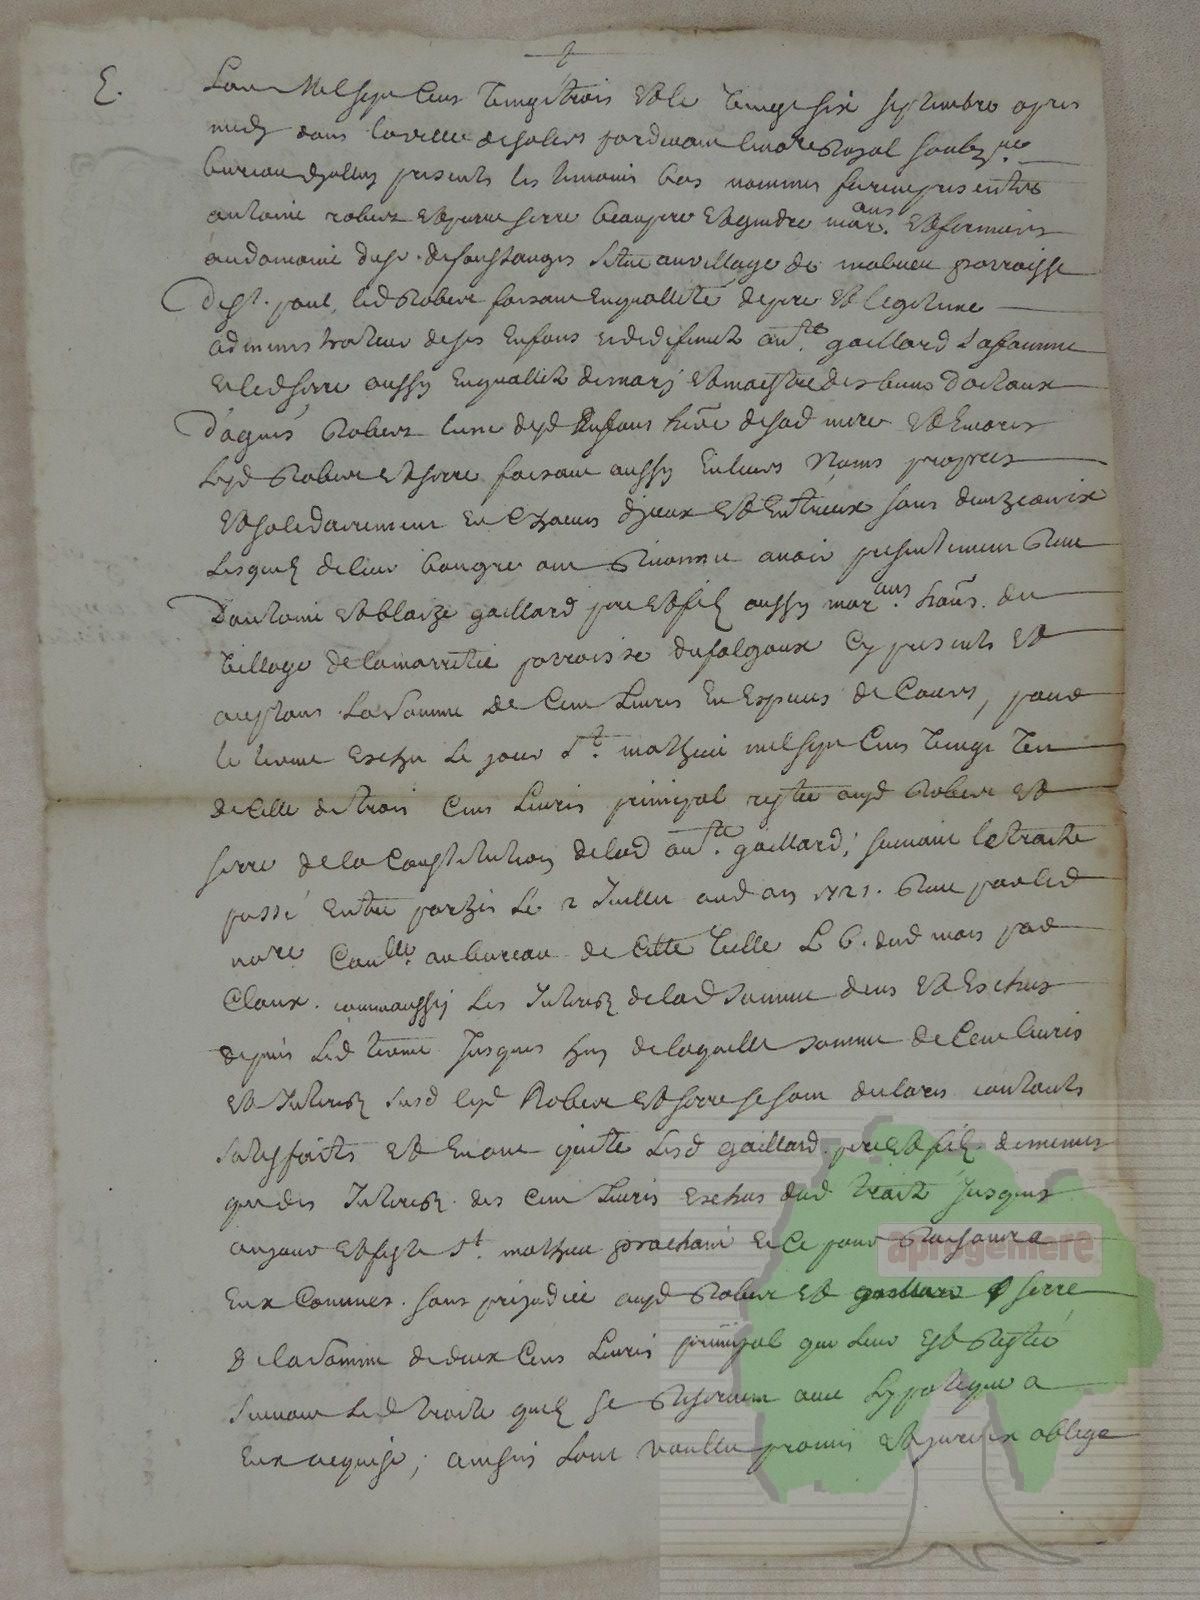 E. L'an Mil sept Cens vingt trois et le vingt six septembre apres
midy dans la ville de salers pardevant le no.re Royal soubz.ne
bureau presents les temoins bas nommes furent presentes
antoine robert et pierre serre beaupere et gendre mar.ans et fermiers
au domaine du sr. de fonstanges situe au village de mabueu parroisse
de st. paul, led Robert faisant en quallité de pere et legitime
administrateur de ses enfans et de defunte ant.te gaillard sa famme
et led serre aussy en quallité de mary et maistre des biens dotaux
d'agnes Robert l'une desd Enfans de sad mere et Encores
lesd Robert et serre faisant aussy en leurs Noms propres
et solidairement un chacun d'yeux et Entreux sans
Lesquels de leur bon gre ont Reconnu avoir presentement Reçu
D'antoine et blaize gaillard pere et fils aussy mar.ans hans. du
village de lamarretie parroisse du falgoux cy presents et
aceptans La Somme De Cent Livres En Especes de Cours, pour
le terme escheu le jour St. mathieu mil sept Cens vingt un
de celle de trois Cens Livres principal restée auxd Robert et
serre de la Constitution de lad ant.te gaillard; suivant le traité
passé entre parties le 2 Juillet aud an 1721. Reçu par led
no.re Con.lle au bureau de cette ville L 6. dud mois par
Claux. comm aussy Les Interests de lad somme deus et Escheus
depuis led terme Jusques huy de laquelle somme de Cent livres
et Interests susd lesd Robert et serre se sont declares contants
satisfaits et en ont quitte lesd gaillard pere et fils de mesmes
que des Interests des cent Livres escheus dud traité Jusques
au jour et feste St. mathieu prochain et ce pour Raisons a
Eux Connues. sans prejudice auxd Robert et serre
de la Somme de deux Cens Livres principal que leur est Restée
suivant led traité quils se Reservent avec hypoteque a
Eux acquise; ainsin l'ont voullu promis et jure ix oblige
aprogemere